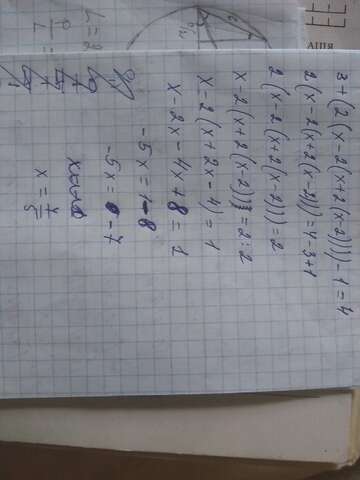 3+(2(x-2(x+2(x-2))))-1=4
2(x-2(x+2(x-2)))=4-3+1
2(x-2(x+2(x-2)))=2
x-2(x+2(x-2))=2:2
x-2(x+2x-4)=1
x-2x-4x+8=1
-5x=1-8
-5x=-7
x=7/5